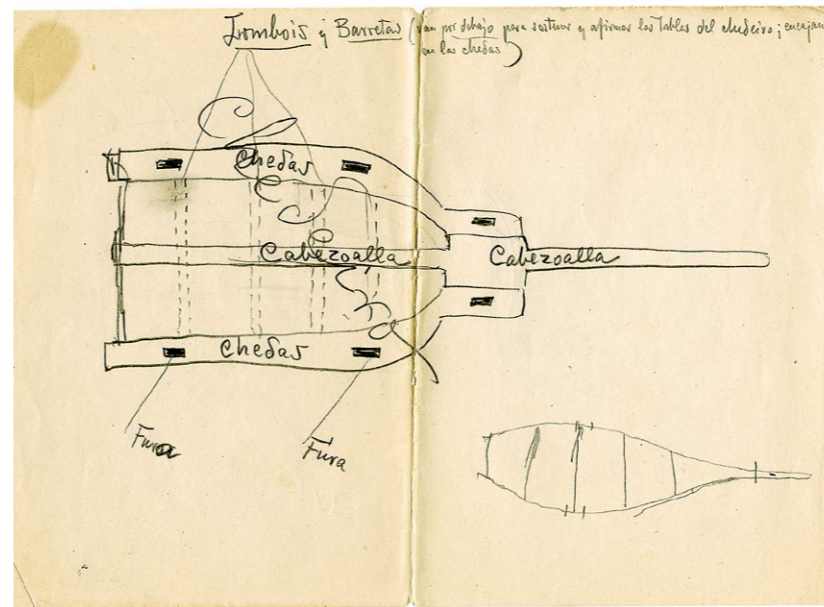 Trombois y Barretas (van por debajo para sostener y afirmar las Tablas del chedeiro; encajan
en las chedas)
Chedas
Cabezoalla
Cabezoalla
Chedas
Fura
Fura